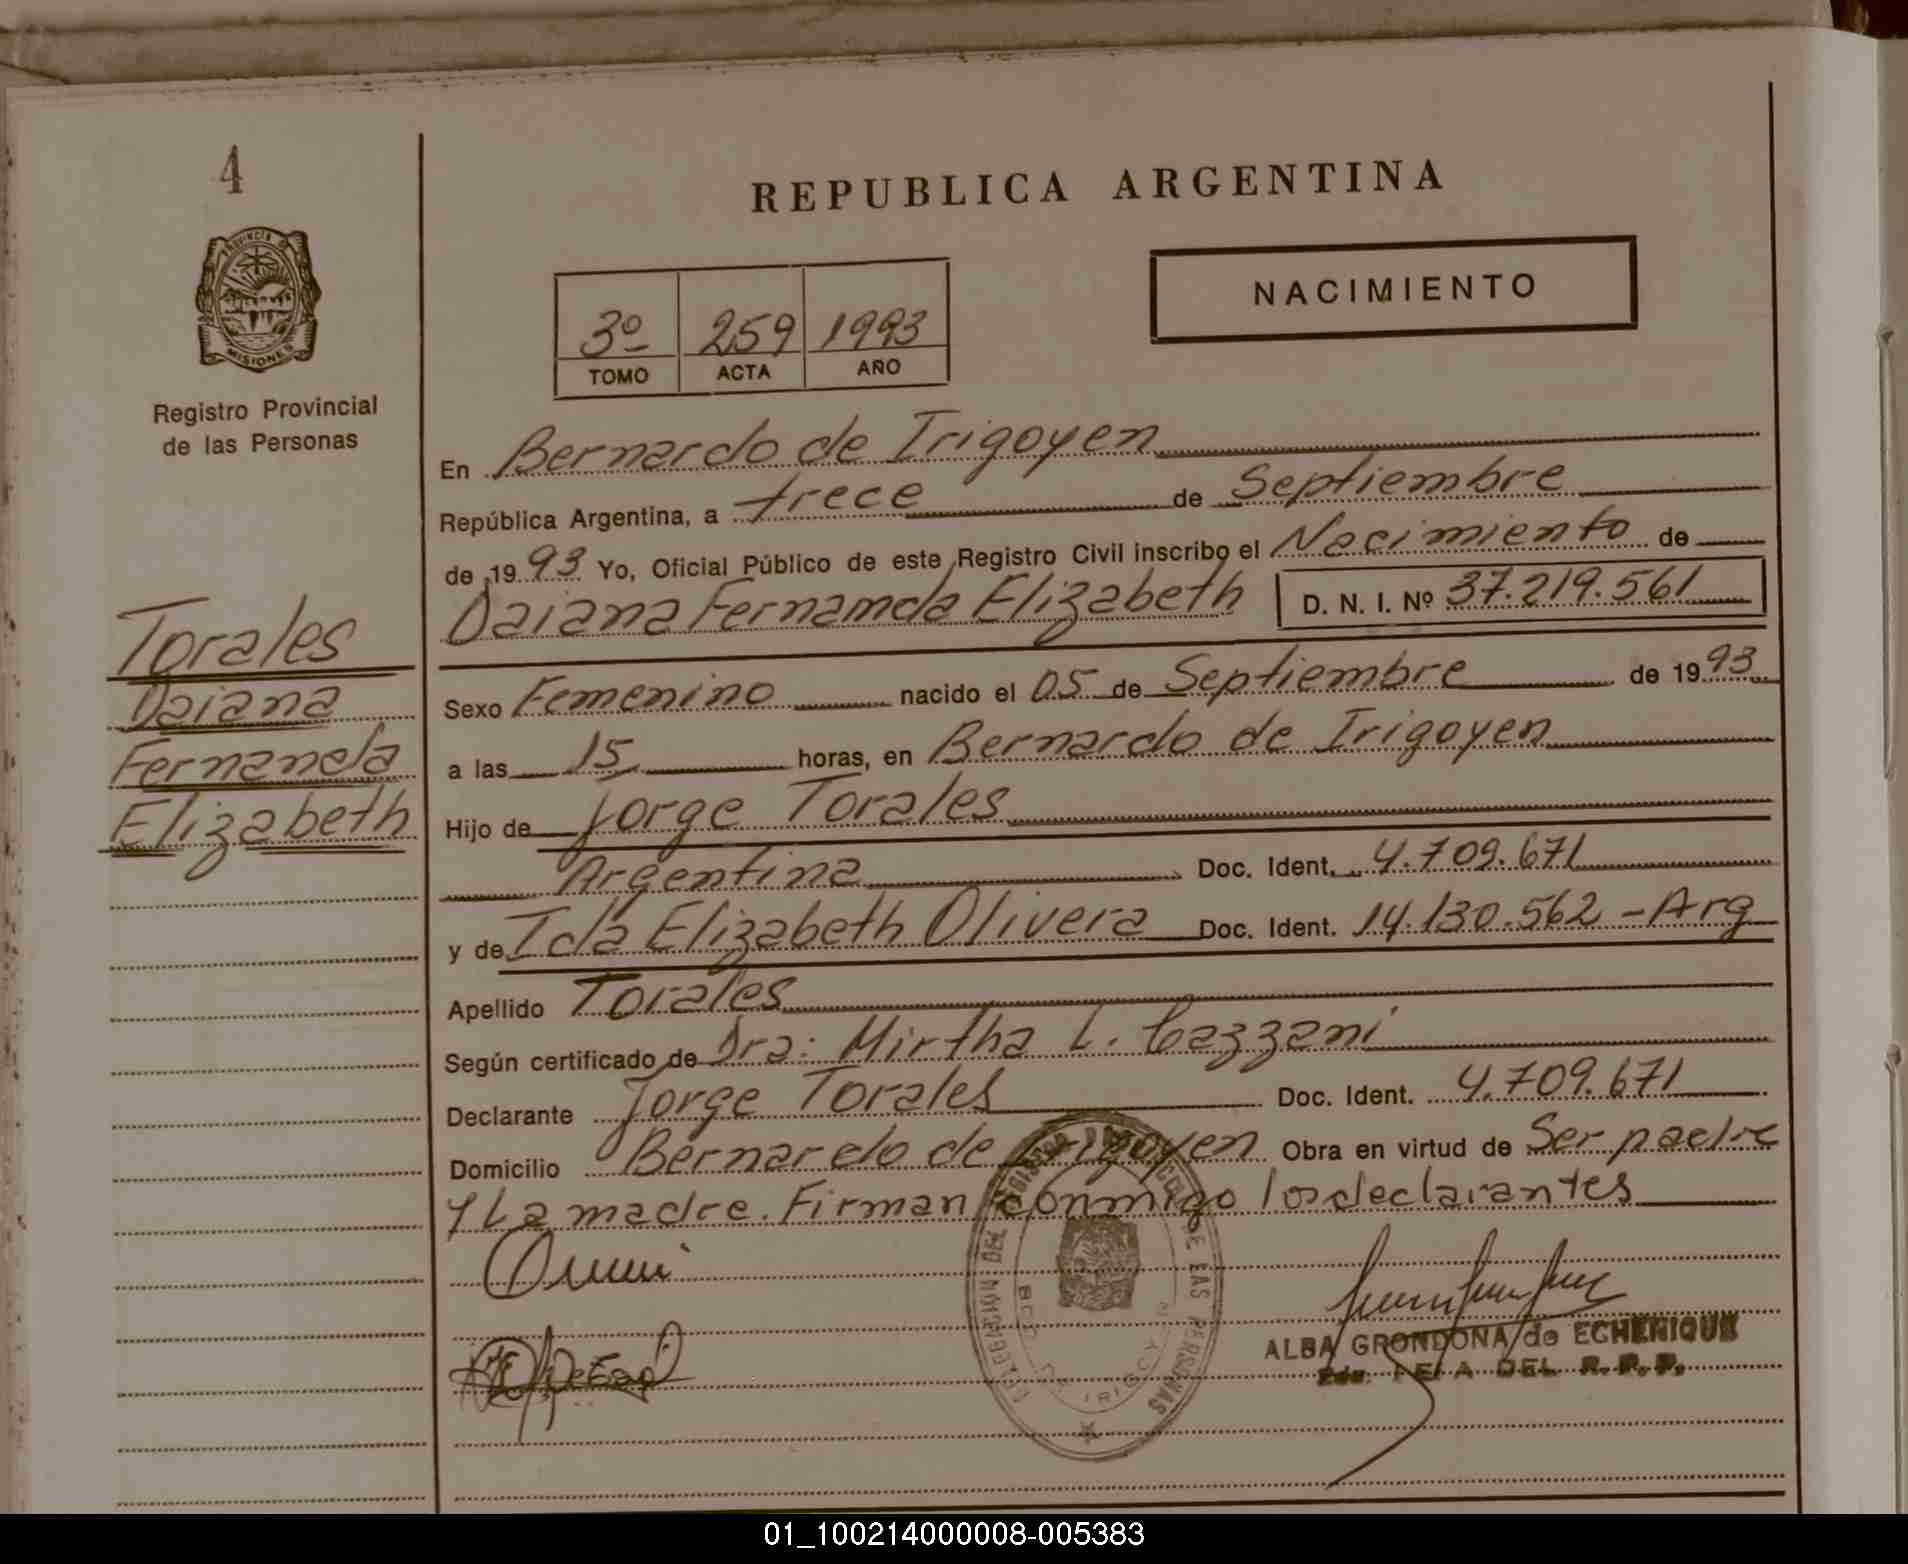 4
PROVINCIA DE
MISIONES
Registro Provincial
de las Personas
Torales
Daiana
Fernanda
Elizabeth
REPUBLICA ARGENTINA
NACIMIENTO
3º 259 1993
TOMO ACTA AÑO
En Bernardo de Irigoyen
República Argentina, a trece de Septiembre
de 1993 Yo, Oficial Público de este Registro Civil inscribo el Nacimiento de
Daiana Fernanda Elizabeth D. N. I. Nº 37.219.561
Sexo Femenino nacido el 05 de Septiembre de 1993
a las 15 horas, en Bernardo de Irigoyen
Hijo de Jorge Torales
Argentina Doc. Ident. 4.709.671
y de Ida Elizabeth Olivera Doc. Ident. 14.130.562 - Arg
Apellido Torales
Según certificado de Dra: Mirtha L. Cazzani
Declarante Jorge Torales Doc. Ident. 4.709.671
Domicilio Bernardo de Irigoyen Obra en virtud de Ser padre
y La madre. Firman conmigo los declarantes
DELEGACION DEL REGISTRO PROVINCIAL DE LAS PERSONAS
BDO DE IRIGOYEN
ALBA GRONDONA de ECHENIQUE
DEL R. P. P.
01_100214000008-005383